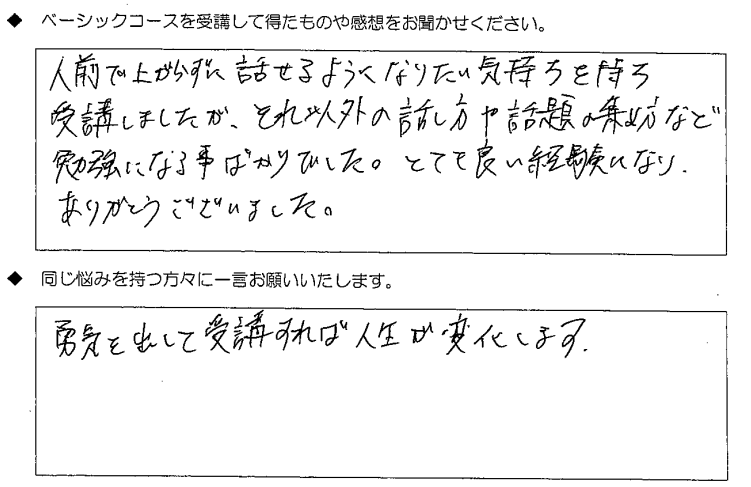 ◆ ベーシックコースを受講して得たものや感想をお聞かせください。
人前で上がらずに話せるようになりたい気持ちを持ち
受講しましたが、それ以外の話し方や話題の集め方など
勉強になる事ばかりでした。とても良い経験になり、
ありがとうございました。
◆ 同じ悩みを持つ方々に一言お願いいたします。
勇気を出して受講すれば人生が変化します。